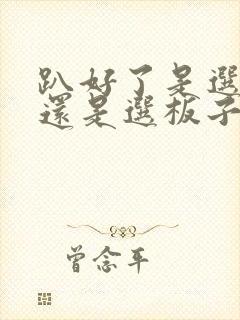 趴好了是選
還是選板子
曾念平